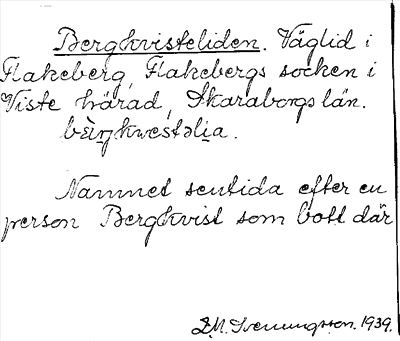 Bergkvisteliden. Väglid i
Flakeberg, Flakebergs socken i
Viste härad, Skaraborgs län.
bæ̀rjkwestəlia.
Namnet sentida efter en
person Bergkvist som bott där
L.M. Svenungsson. 1939.